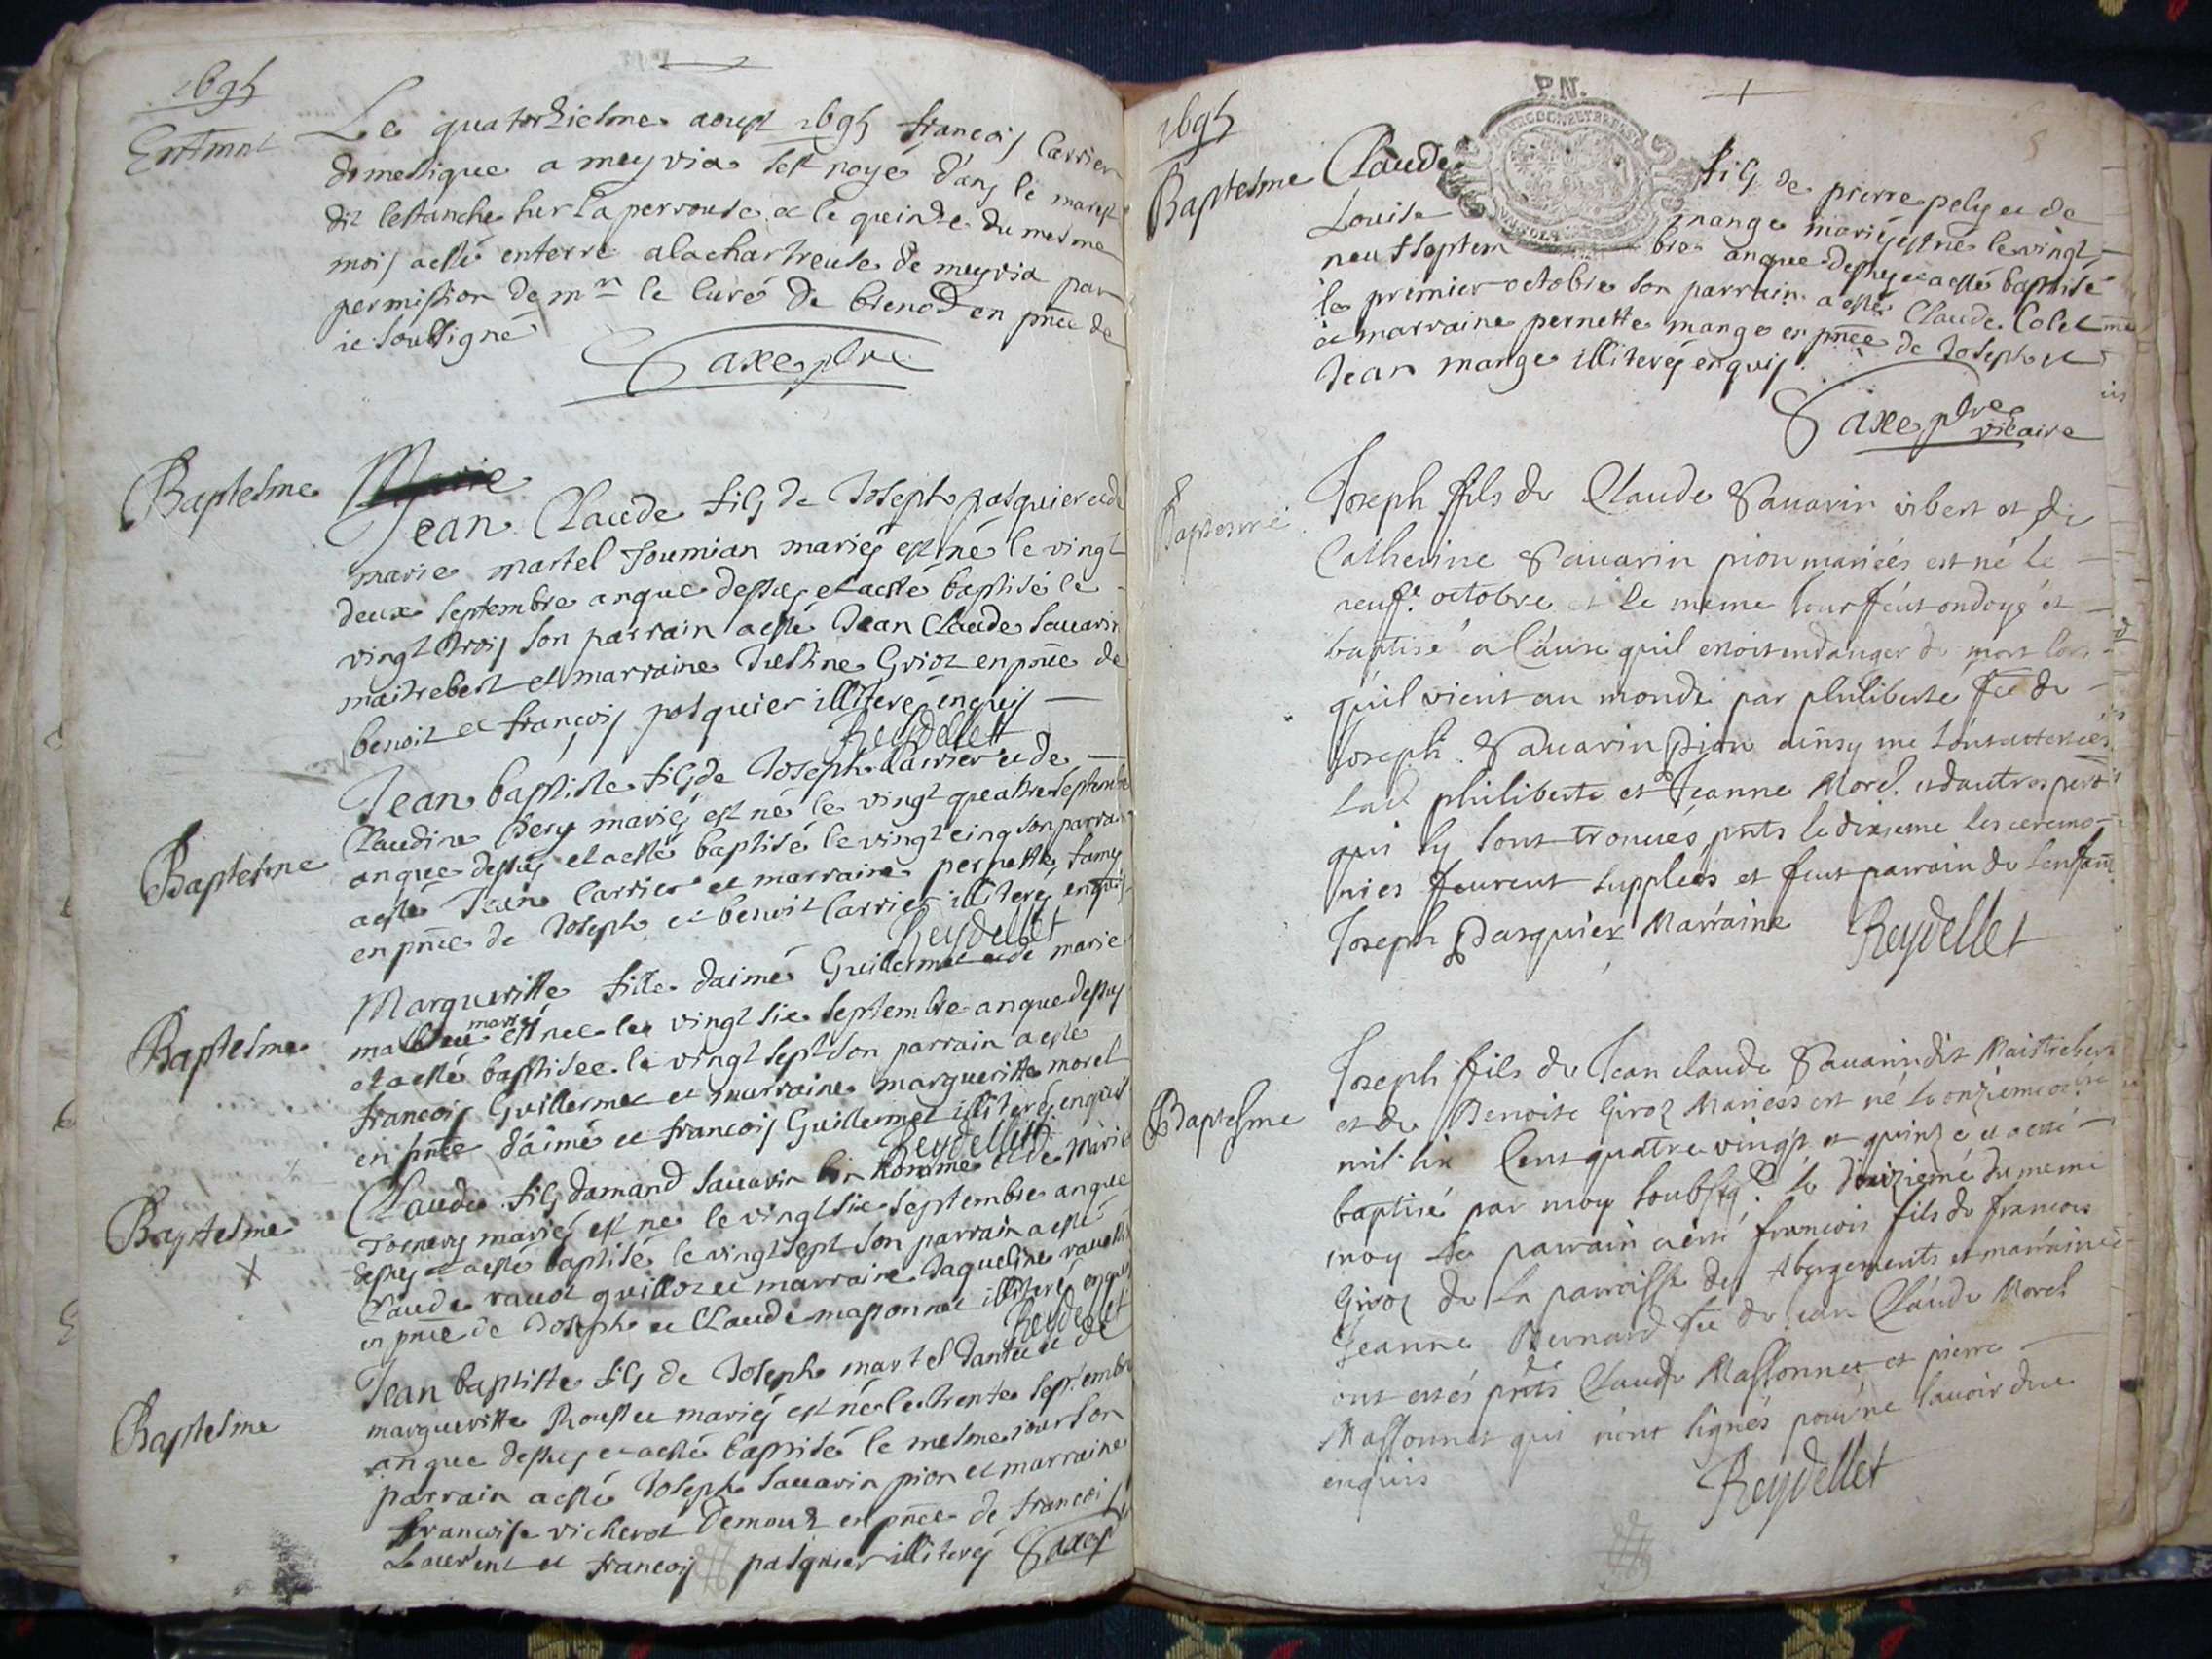 1695
Entmnt
Le quatorziesme aoust 1695 francois Carrier
domestique a meyria sest noyé dans le
dit lestanche sur la perrouse et le quinze du mesme
mois a esté enterré a la chartreuse de meyria par
permission de mr le curé de brenod en pnce de
ie soubsigné
Saxe ptre
Baptesme
Jean Claude fils de Joseph pasquier et de
marie martel Joumian mariés est né le vingt
deux septembre an que dessus et a esté baptisé le
vingt trois son parrain a esté Jean Claude Sauarin
maitrebert et marraine Justine Griot en pnce de
benoit et françois pasquier illiterés enquis
Reydellet
Baptesme
Jean baptiste fils de Joseph Carrier et de
Claudine Bery mariés est né le vingt quatre septembre
an que dessus et a esté baptisé le vingt cinq son parrain
a esté Jean Carrier et marraine pernette
en pnce de Joseph et benoit Carrier illiterés enquis
Reydellet
Baptesme
Margueritte fille daimé Guillermet et de marie
mariés est nee le vingt six septembre an que dessus
et a esté baptisee le vingt sept son parrain a esté
francois Guillermet et marraine margueritte morel
en pnce daimé et francois Guillermet illiterés enquis
Reydellet
Baptesme
x
Claude fils damand Sauarin bon homme et de Marie
mariés est né le vingt six septembre an que
dessus et a esté baptisé le vingt sept son parrain a esté
Claude rauot guillot et marraine Jaqueline
en pnce de Joseph et Claude massonnet illiterés enquis
Reydellet
Baptesme
Jean baptiste fils de Joseph martel et de
margueritte mariés est né le trente septembre
an que dessus et a esté baptisé le mesme iour son
parrain a esté Joseph Sauarin pion et marraine
françoise vicherot en pnce de francois
Laurent et francois pasquier illiterés Saxe p
1695
P.N.
Baptesme
Claude fils de pierre pely et de
Louise mange mariés est né le vingt
neuf septembre an que dessus et a esté baptisé
le premier octobre son parrain a esté Claude Colet
et marraine pernette mange en pnce de Joseph et
Jean mange illiterés enquis
Saxe ptre
vicaire
Baptesme
Joseph fils de Claude Sauarin vibert et de
Catherine Sauarin pion mariés est né le
neufe octobre et le meme iour feut ondoyé et
baptisé a cause quil estoit en danger de mort lors
quil vient au monde par philiberte fee de
Joseph Sauarin Pion ainsy me lont attestees
lad philiberte et Jeanne Morel et dautres pers
qui sy sont trouués pnts le dixieme les ceremo
nies feurent supplees et feut parrain de lenfant
Joseph Pasquier Marraine
Reydellet
Baptesme
Joseph fils de Jean claude Sauarin dit Maistrebert
et de Benoite Giroz Mariees est né le onzieme octbre
mil six Cens quatre vingt et quinze et a esté
baptisé par moy soubsig. le douzieme du meme
moy le parrain a esté francois fils de francois
Giroz de la parroisse des Abergements et marraine
Jeanne Bernard fee de Jean Claude Morel
ont estés pnts Claude Massonnet et pierre
Massonnet qui nont signés pour ne sauoir de ce
enquis
Reydellet